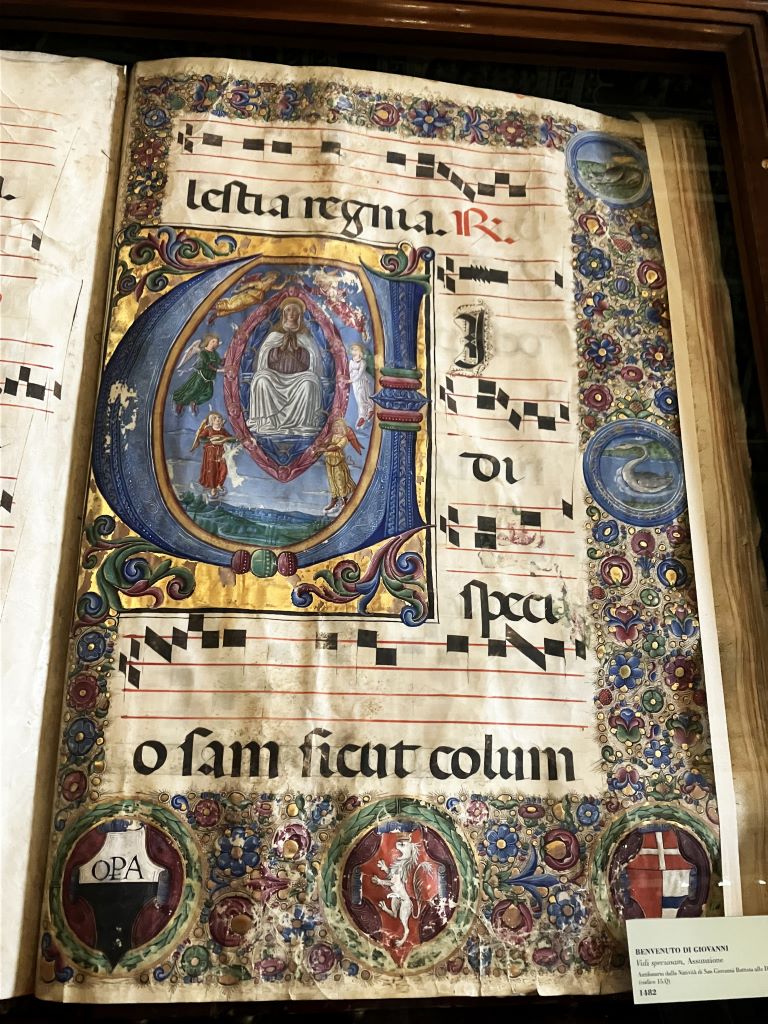 lestia regnia. R.
V
I
DI
speci
osam sicut colum
OPA
BENVENUTO DI GIOVANNI
Vidi speciosam, Assunzione
Antifonario dalla Natività di San Giovanni Battista alla D
1482